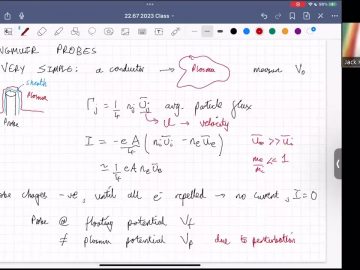 22.67 2023 Class
NGMUIR PROBES
VERY SIMPLE: a conductor → Plasma measure V₀
sheath
Plasma
Probe
Γⱼ = 1/4 nⱼ Ūⱼ avg. particle flux
U → velocity
I = -eA/4 (nᵢūᵢ - nₑūₑ) ūₑ >> ūᵢ
mₑ/mᵢ << 1
≃ 1/4 eA nₑūₑ
robe charges -ve, until all e⁻ repelled → no current, I=0
Probe @ floating potential Vf
≠ plasma potential Vp due to perturbation
Jack